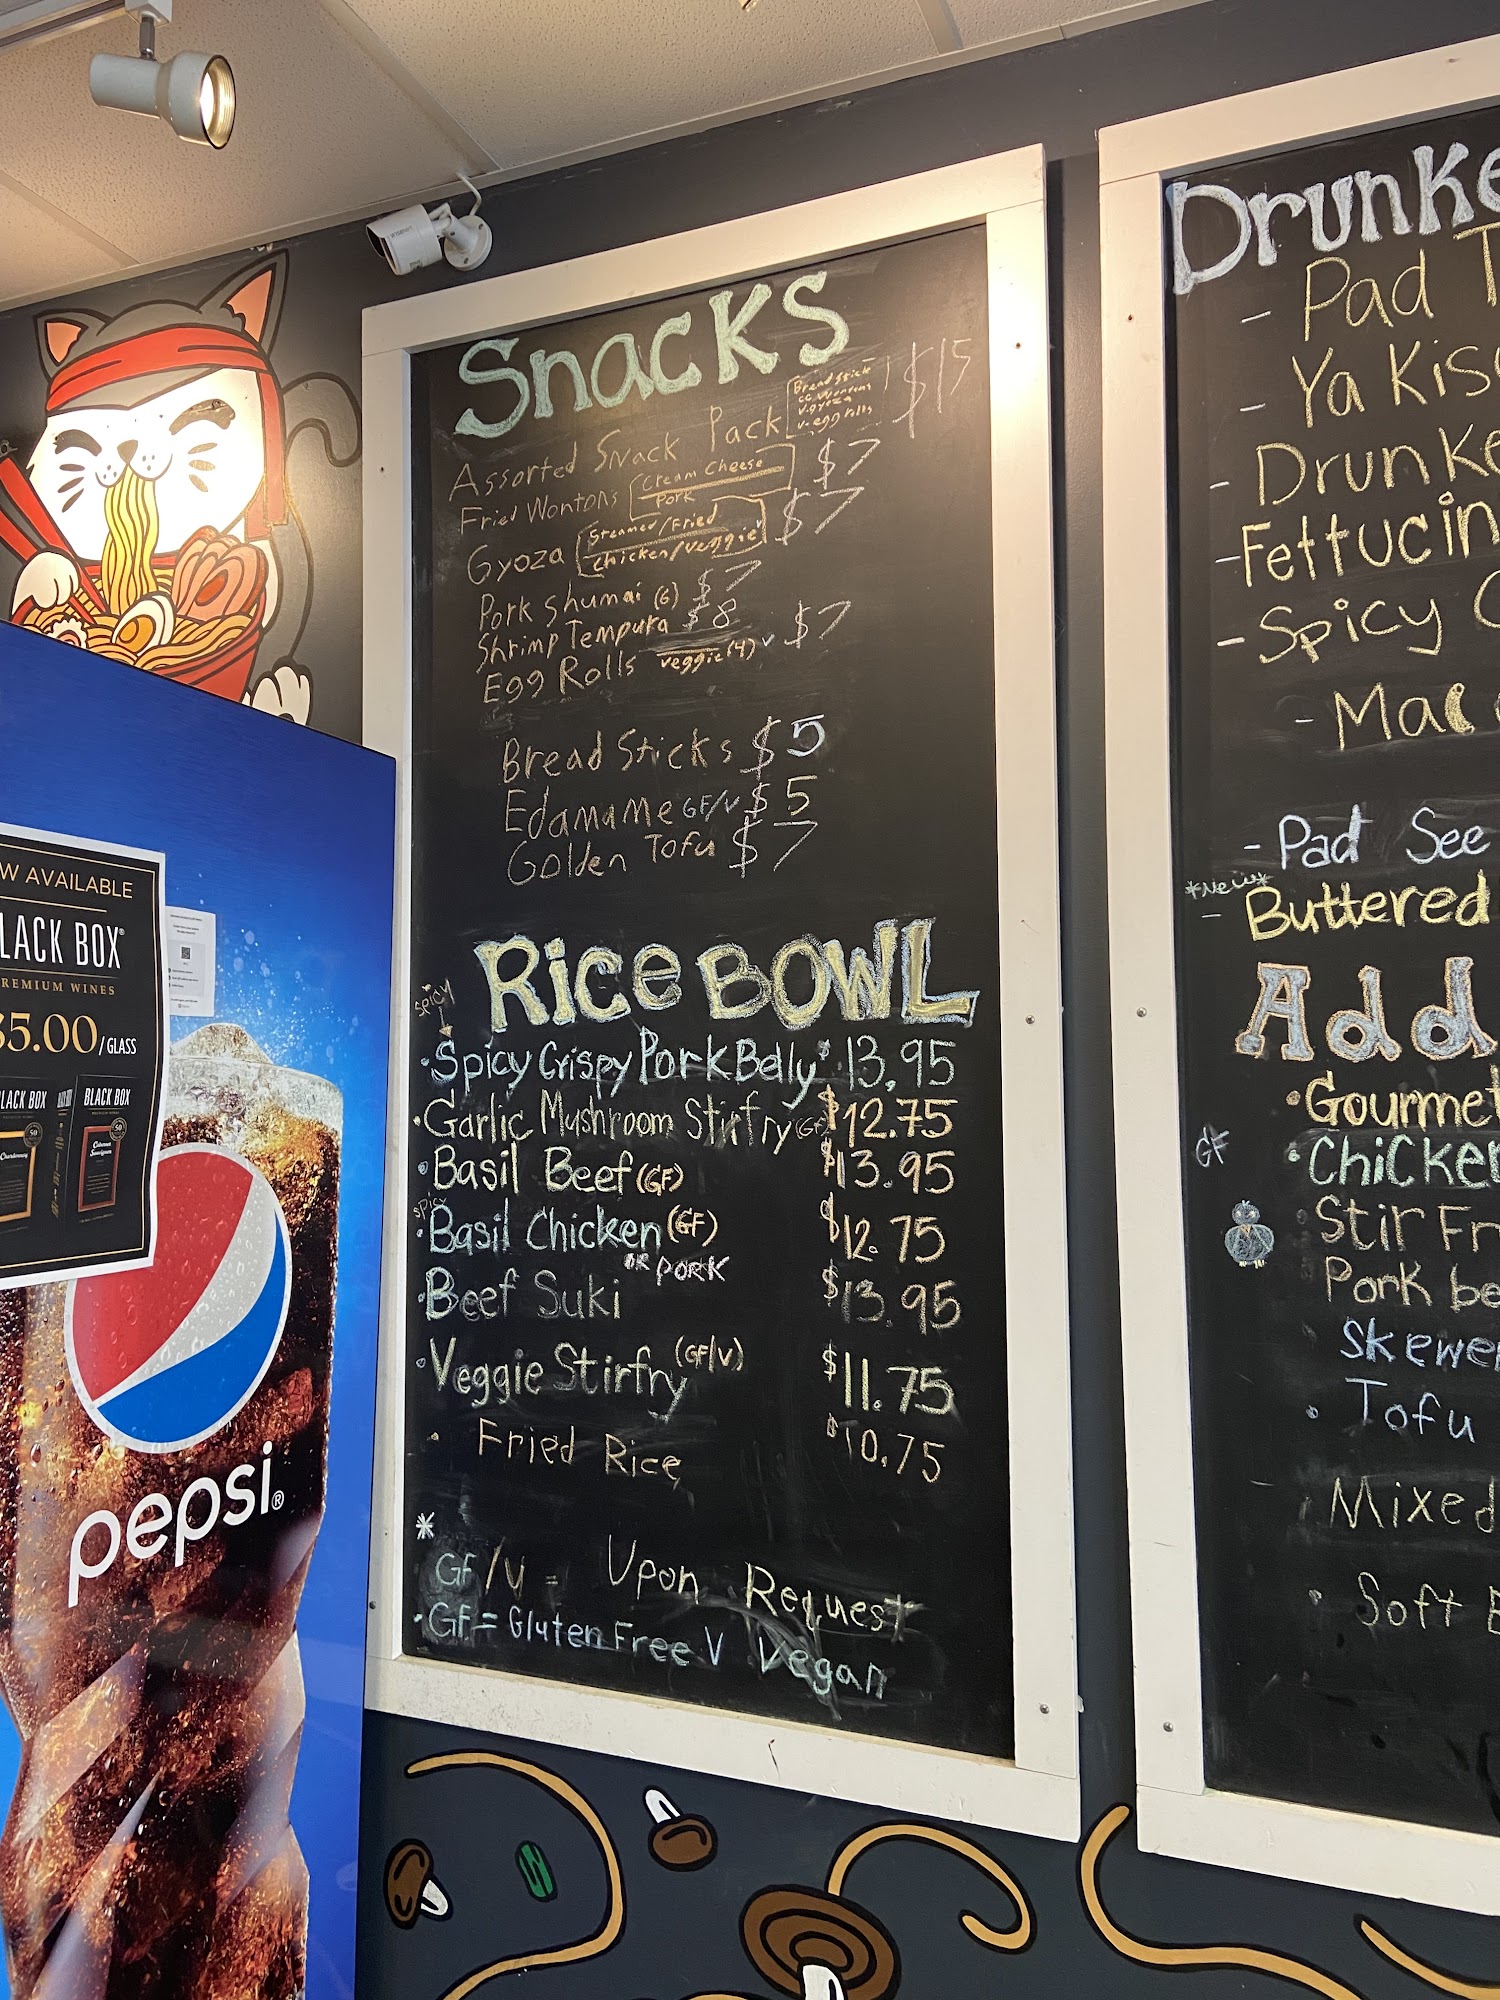 Snacks
Assorted Snack Pack Bread stick $15
v.gyoza
v-egg rolls
Fried Wontons Cream Cheese $7
Pork
Gyoza Steamed/Fried $7
Chicken/Veggie v
Pork Shumai (6) $7
Shrimp Tempura $8
Egg Rolls veggie(4) v $7
Bread Sticks $5
Edamame GF/V $5
Golden Tofu $7
Rice BOWL
spicy
Spicy Crispy Pork Belly $13.95
Garlic Mushroom Stirfry (GF) $12.75
Basil Beef (GF) $13.95
spicy
Basil Chicken (GF) $12.75
OR PORK
Beef Suki $13.95
Veggie Stirfry (GF/V) $11.75
Fried Rice $10.75
*
GF/V = Upon Request
GF = Gluten Free V Vegan
Drunke
- Pad T
- Ya Kiso
- Drunke
- Fettucin
- Spicy C
- Mac
- Pad See
*New*
- Buttered
Add
Gourmet
GF Chicken
Stir Fr
Pork be
Skewe
Tofu
Mixed
Soft
W AVAILABLE
LACK BOX®
REMIUM WINES
$5.00/GLASS
LACK BOX
BLACK BOX
Chardonnay
Cabernet Sauvignon
pepsi®